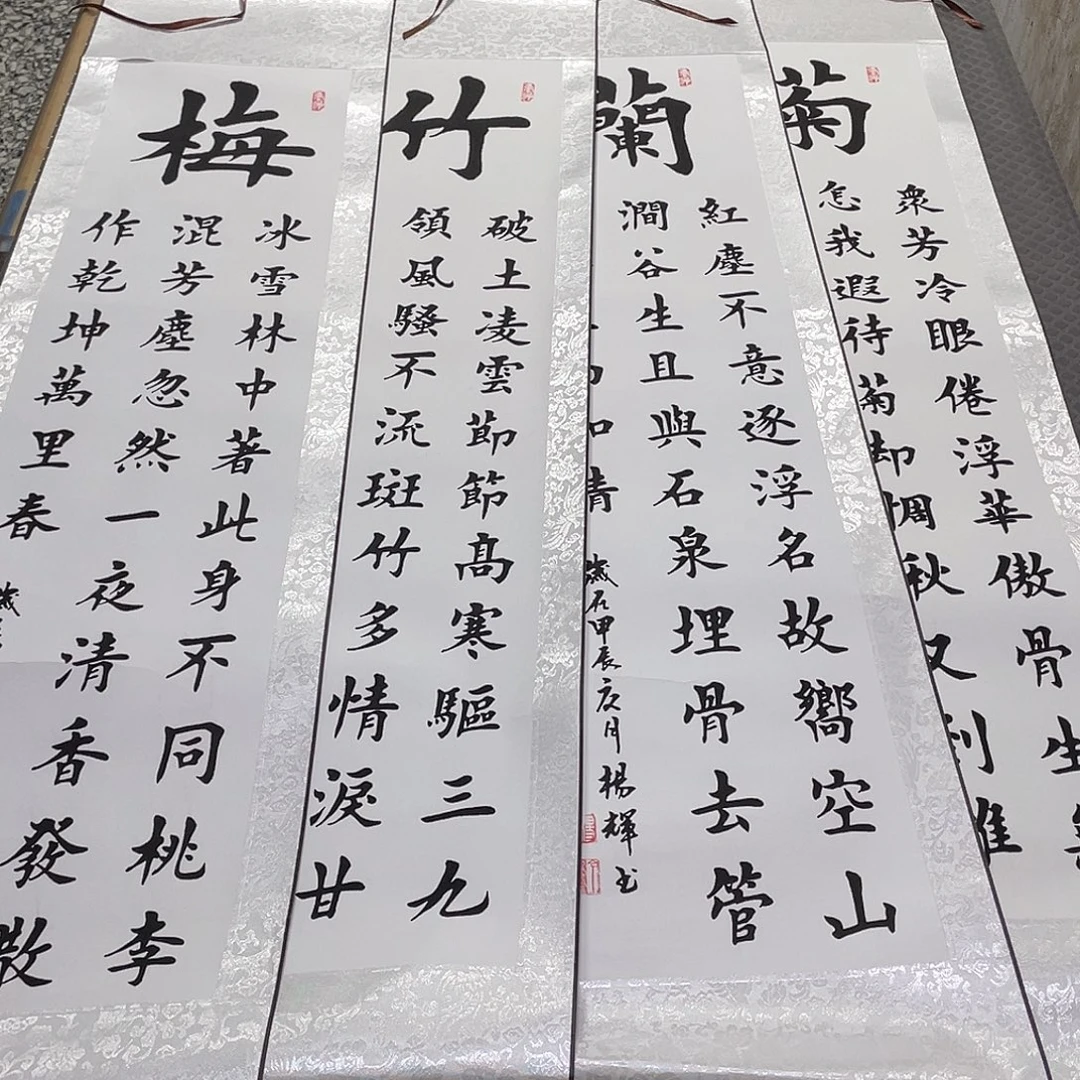 梅
冰雪林中著此身不同桃李
混芳塵忽然一夜清香發散
作乾坤萬里春
竹
破土凌雲節節高寒驅三九
領風騷不流斑竹多情淚甘
蘭
紅塵不意逐浮名故嚮空山
澗谷生且與石泉埋骨去管
歲在甲辰月楊輝书
菊
衆芳冷眼倦浮華傲骨生
怎我遐待菊却惆秋又到